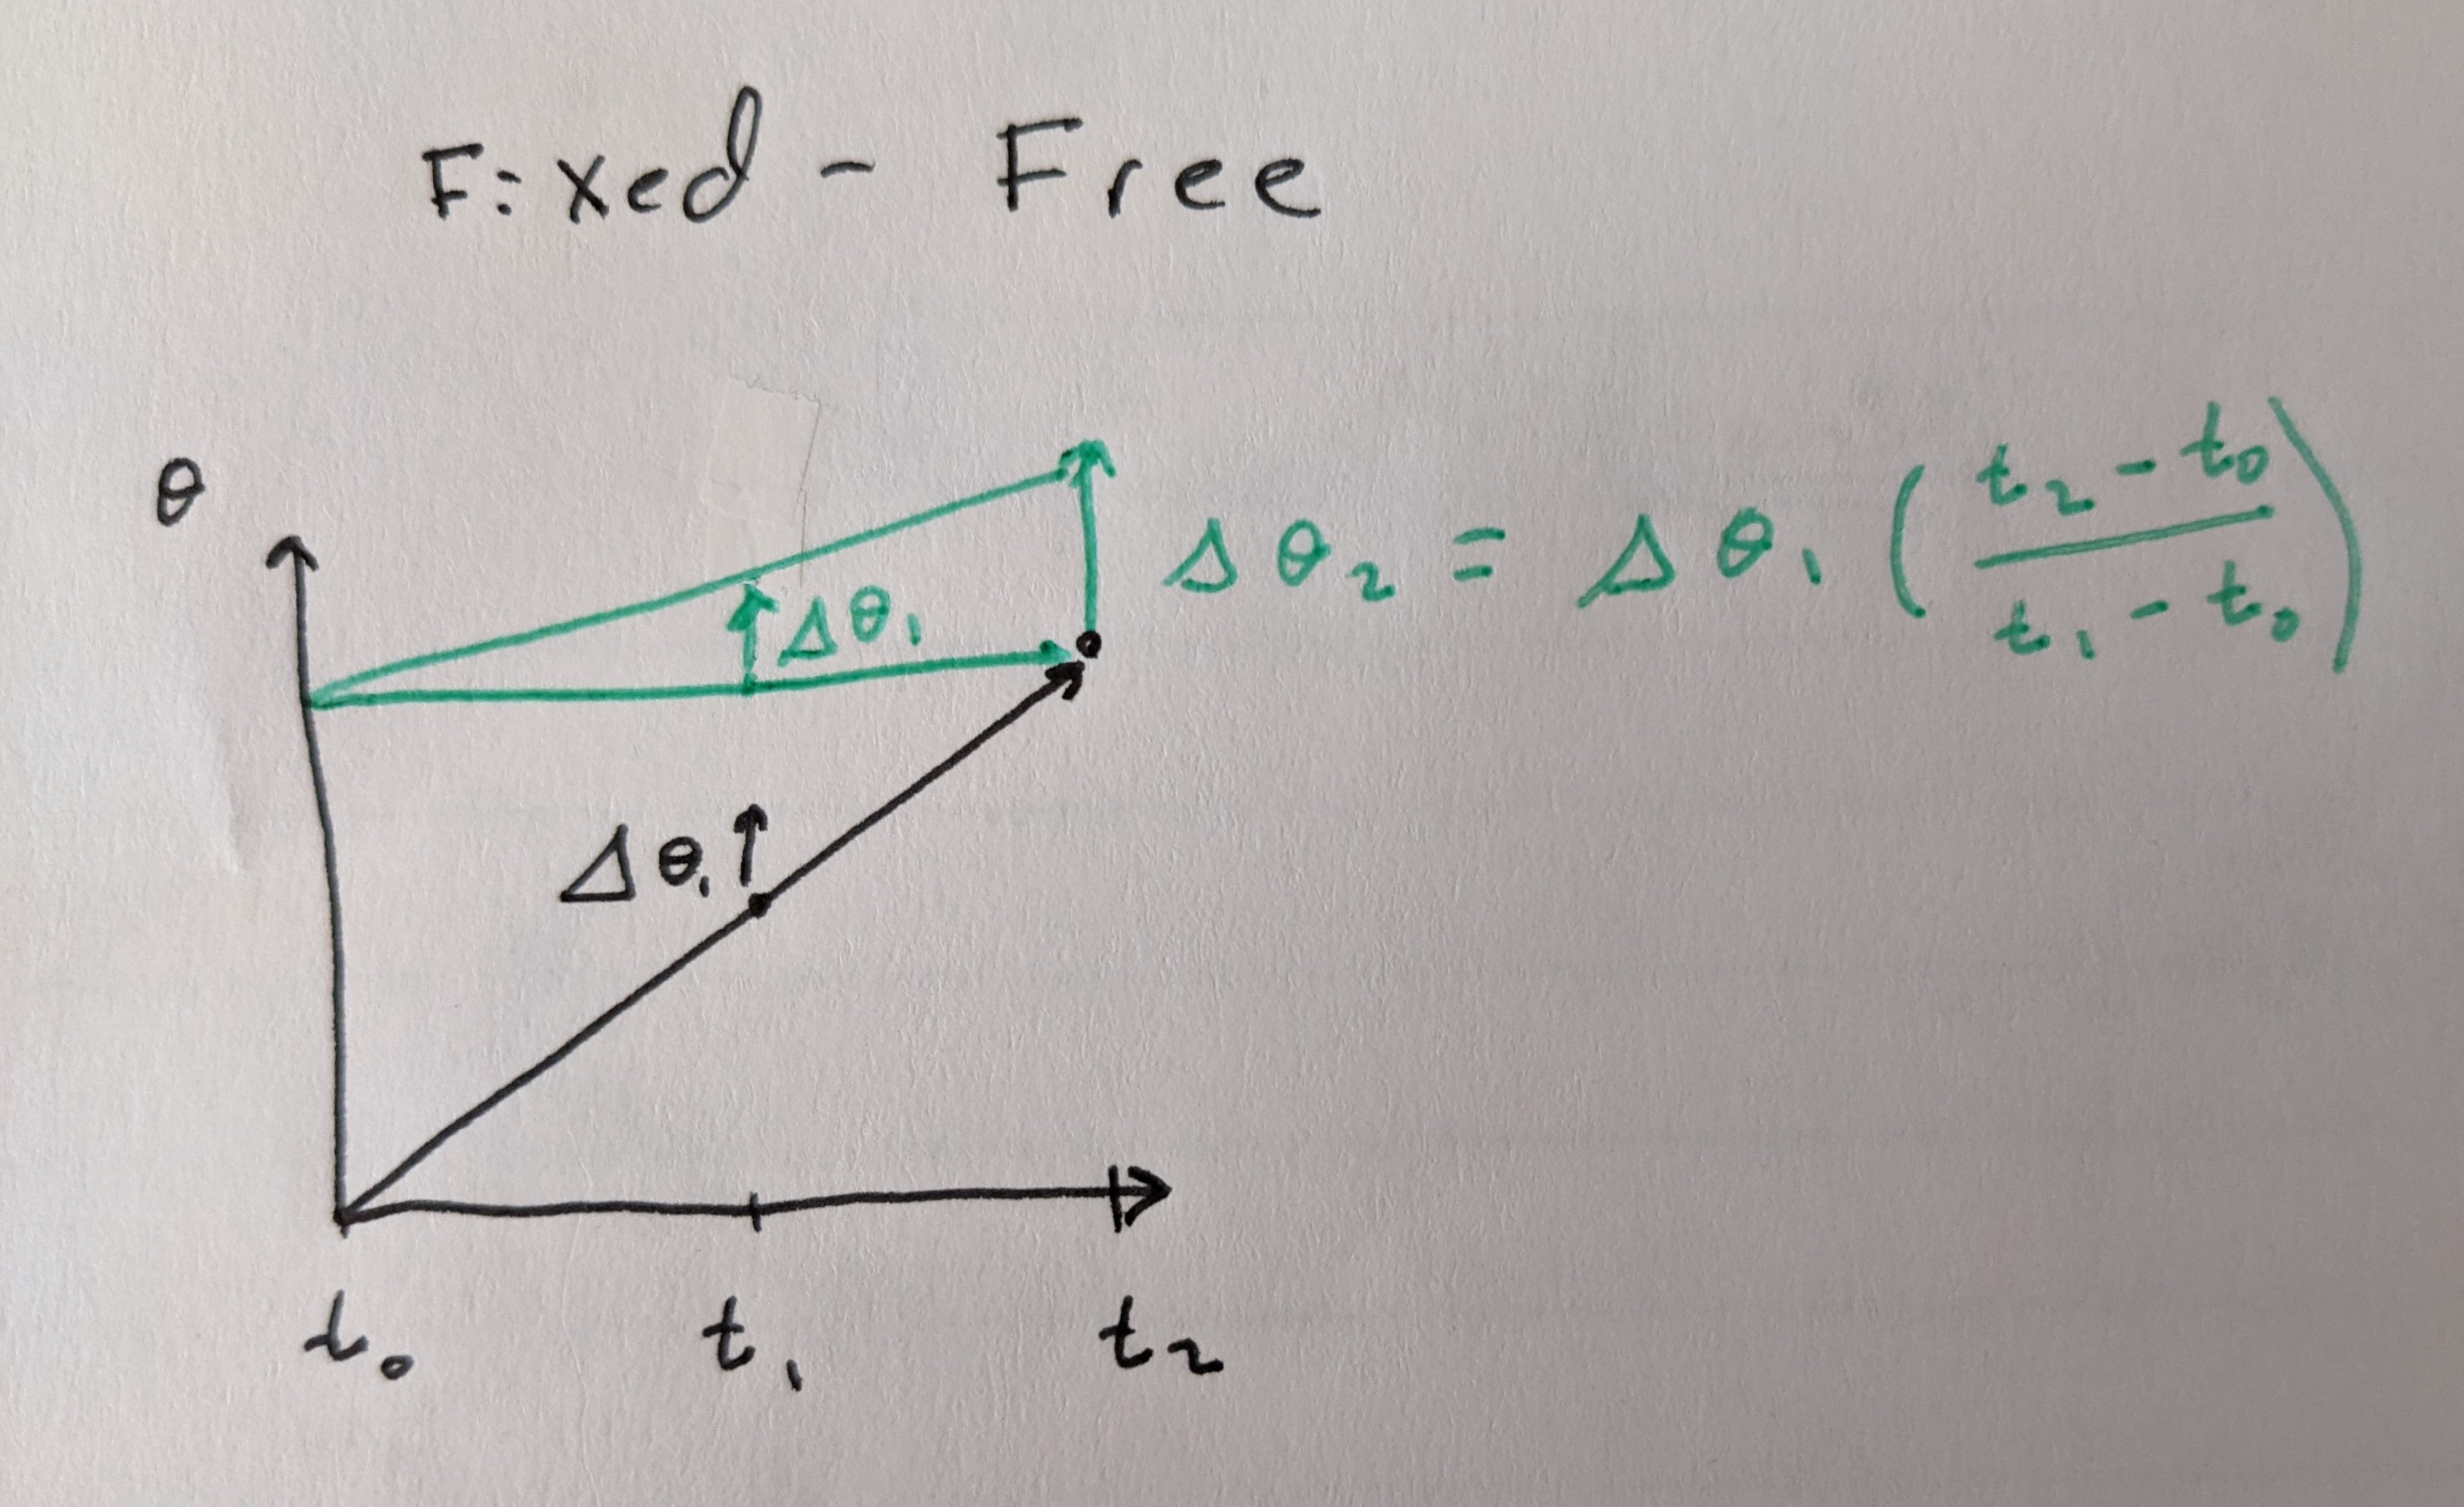 Fixed - Free
θ
Δθ₂ = Δθ₁ (t₂ - t₀ / t₁ - t₀)
Δθ₁
Δθ₁
t₀ t₁ t₂